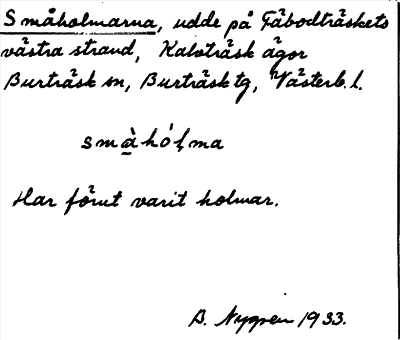 Småholmarna, udde på Fäbodträskets
västra strand, Kalvträsk ägor
Burträsk sn, Burträsk tg, Västerb. l.
smà̱hól̥ma
Har förut varit holmar.
B. Nygren 1933.